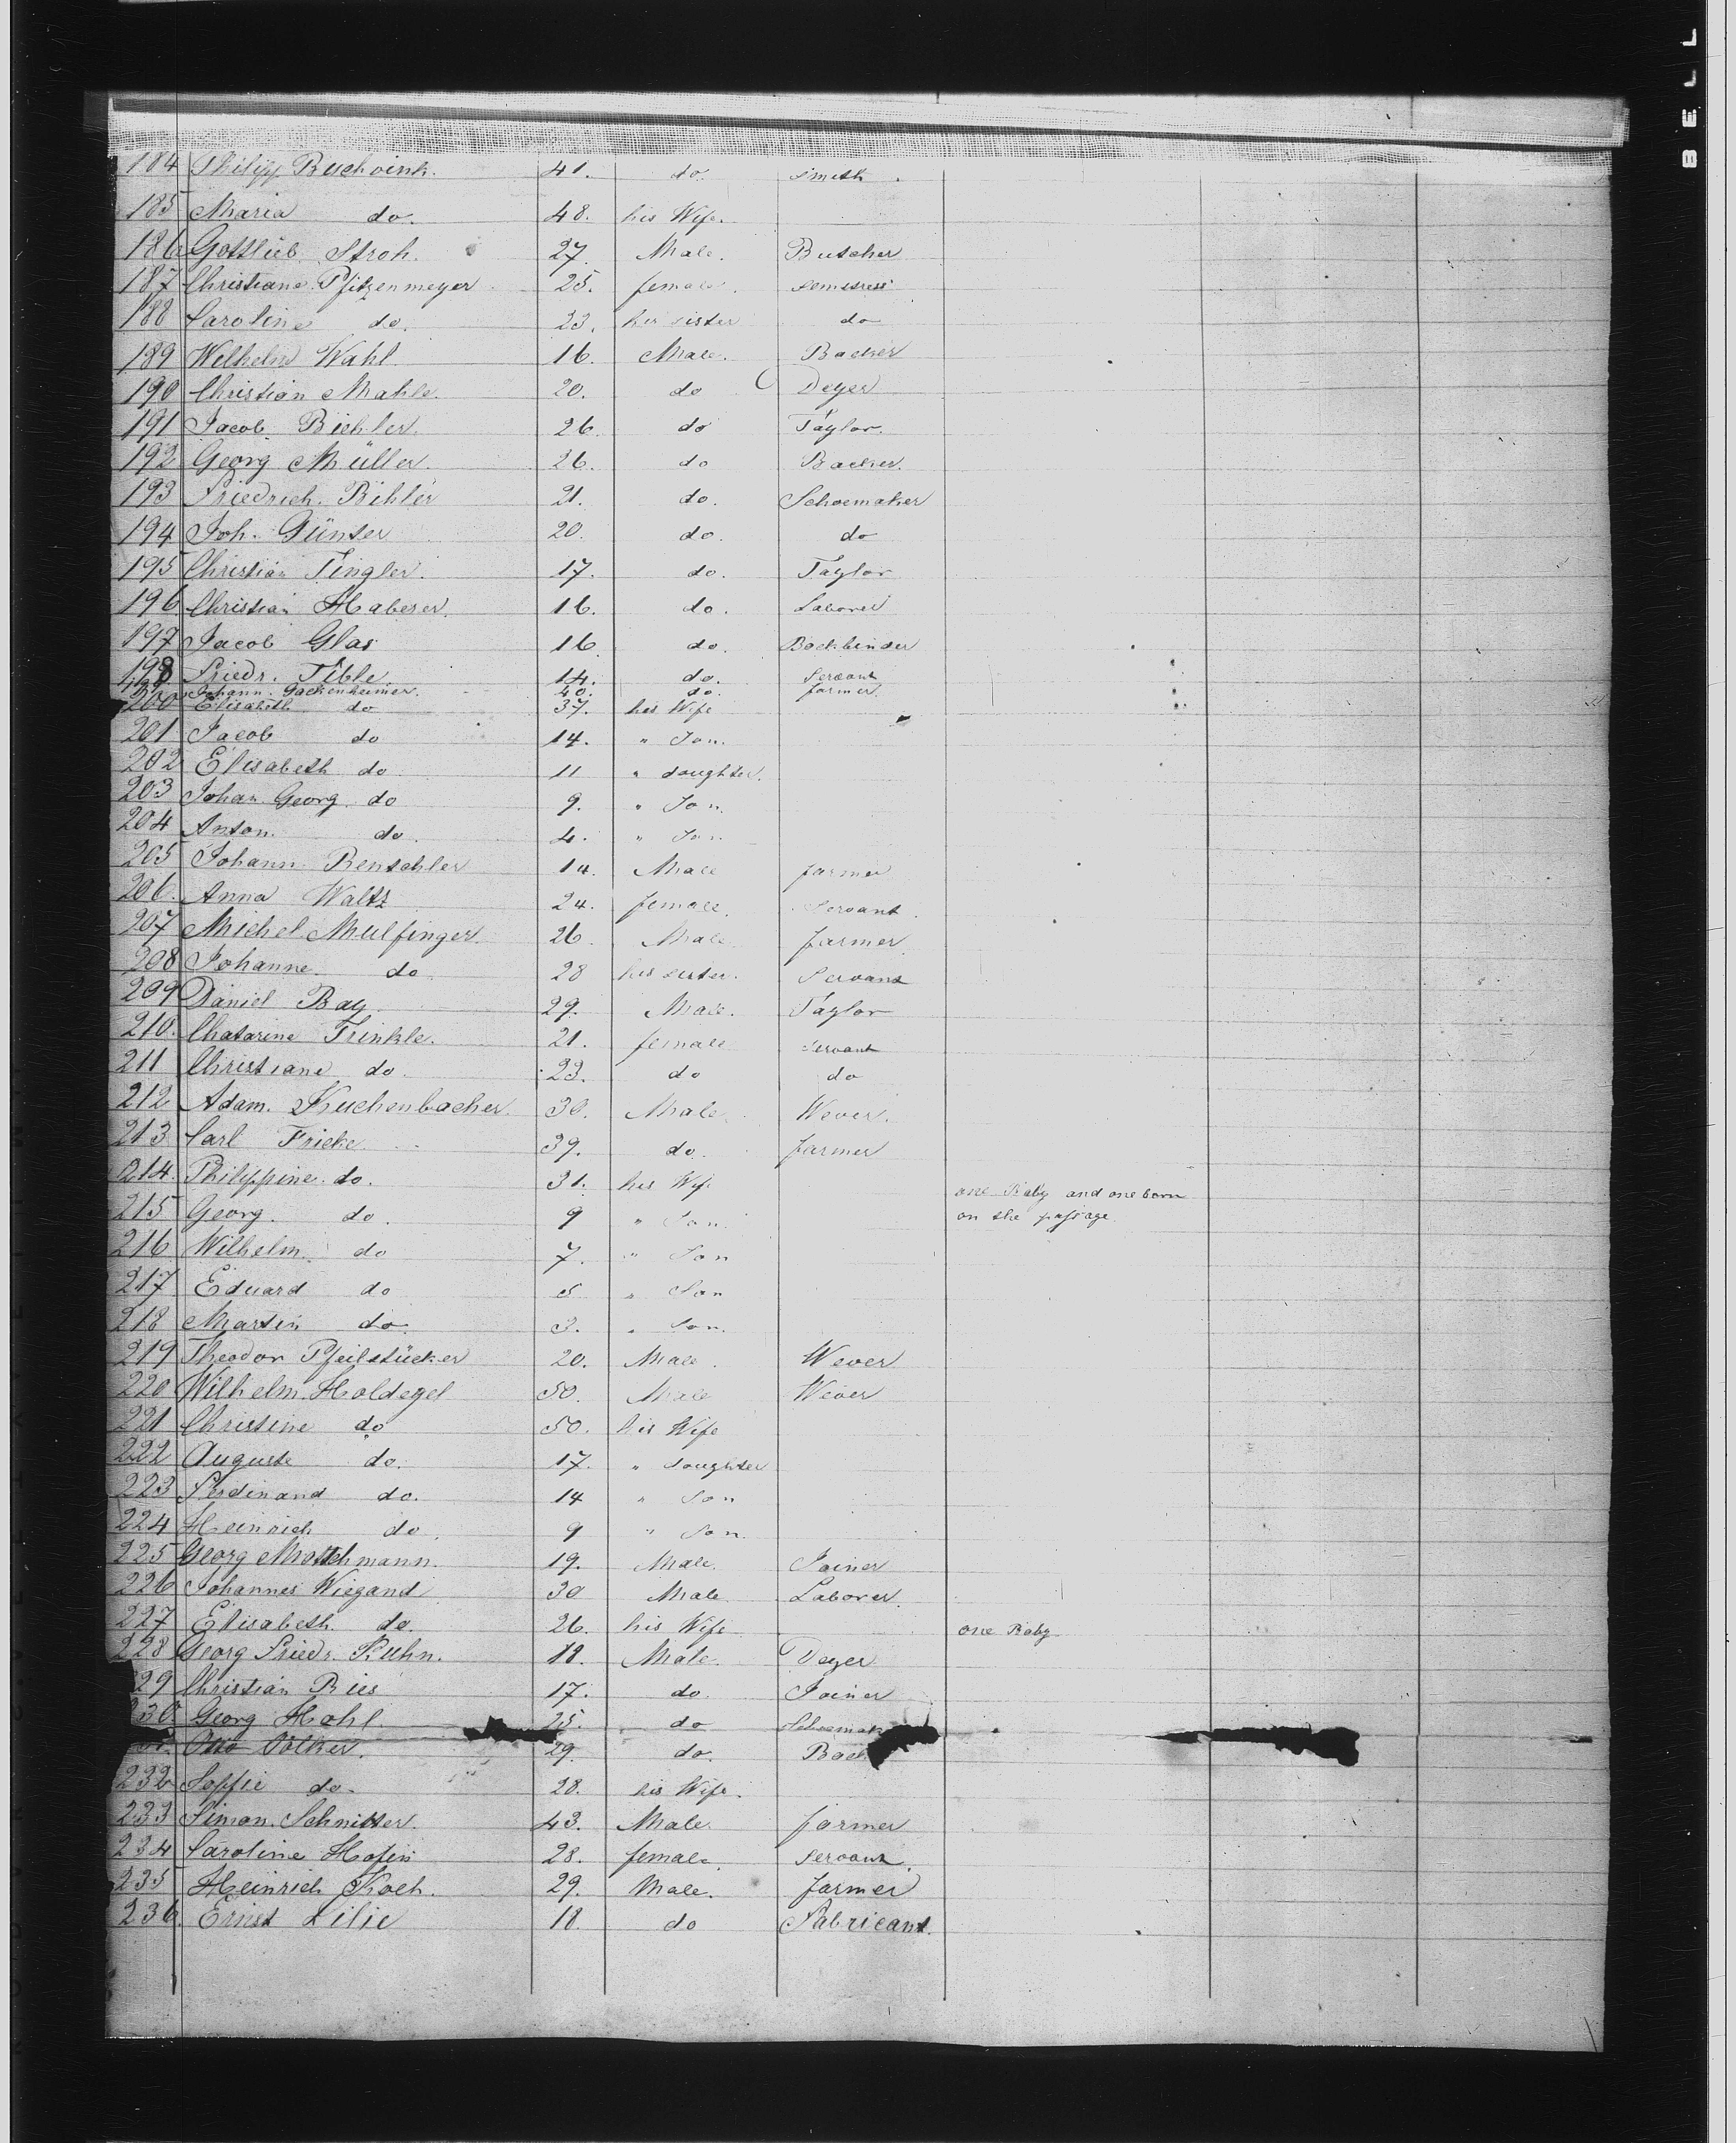 BELL
184 Philipp Buchvink. 41. do. smith.
185 Maria do. 48. his Wife.
186 Gottlieb Stroh. 27. Male. Butcher
187 Christiane Pfitzenmeyer 25. female. semstress
188 Caroline do. 23. her sister do
189 Wilhelm Wahl 16. Male. Backer
190 Christian Mahle. 20. do Deyer
191 Jacob Biehler. 26. do Taylor.
192 Georg Müller. 26. do Backer.
193 Friedrich Bihler 21. do. Schoemaker
194 Joh. Günter 20. do. do
195 Christian Tingler. 17. do. Taylor
196 Christian Haberer. 16. do. Laborer
197 Jacob Glas 16 do. Bockbinder
198 Friedr. Tible. 14. do. Servant
199 Johann Gackenheimer. 40. do. farmer.
200 Elisabeth do 37. his Wife
201 Jacob do 14. " Son.
202 Elisabeth do 11 " daughter.
203 Johan Georg. do 9. " Son
204 Anton. do. 4. " Son
205 Johann Rentschler 14. Male farmer
206. Anna Waltz 24. female. Servant.
207 Michel Mulfinger. 26. Male farmer
208 Johanne do 28 his sister. Servant
209 Daniel Bay 29. Male. Taylor
210. Chatarine Trinkle. 21. female servant
211 Christiane do. 23. do do
212 Adam. Kuchenbacher. 30. Male. Wever.
213 Carl Fricke 39. do. farmer
214. Philippine do. 31. his Wife one Baby and one born
215 Georg. do. 9 " Son on the passage
216 Wilhelm. do 7. " Son
217 Eduard do 5 " Son
218 Martin do. 3. " Son.
219 Theodor Pfeilstücker 20. Male. Wever
220 Wilhelm Holdegel 50. Male Wever
221 Christine do 50. his Wife
222 Auguste do. 17. " daughter
223 Ferdinand do. 14 " Son
224 Heinrich do. 9 " Son.
225 Georg Mottchmann. 19. Male. Joiner
226 Johannes Wiegand 30 Male Laborer.
227 Elisabeth. do. 26. his Wife one Baby
228 Georg Friedr. Kuhn. 18. Male. Deyer
29 Christian Ries 17. do. Joiner
230. Georg Hohl. 25. do Schoemak
Otto Völker. 29. do. Back
232 Soffie do. 28. his Wife.
233 Simon. Schnitter. 43. Male. farmer
234 Caroline Hofin 28. female. Servant.
235 Heinrich Koch. 29. Male. farmer
236. Ernst Lilie 18. do Fabricant.